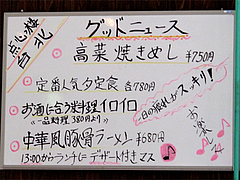 点心の楼
台北
グッドニュース
高菜焼きめし ¥750円
定番人気夕定食 各780円
お酒に合う料理イロイロ
〈一品料理 380円より〉
一日の疲れがスッキリ!
中華風豚骨ラーメン ¥680円
13:00からランチにデザート付きマス